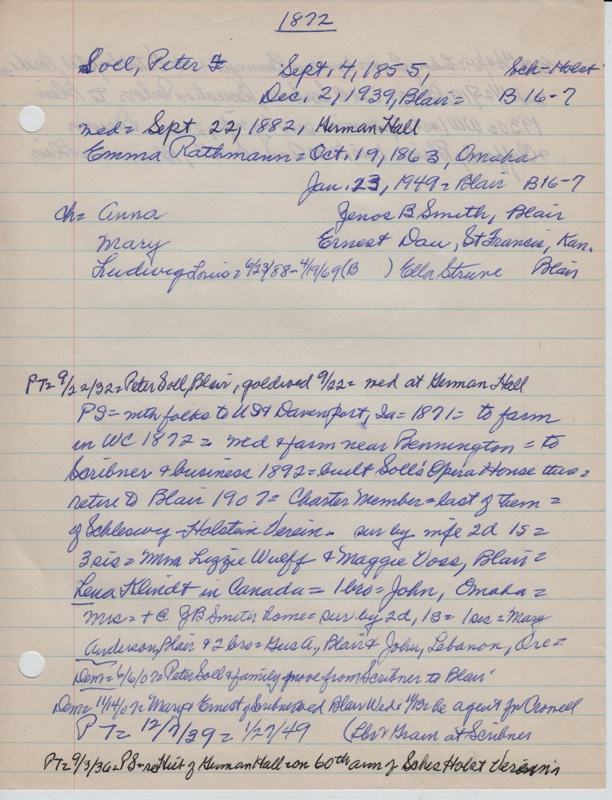 1872
Soll, Peter F Sept. 4, 1855, Sch-Holst
Dec. 2, 1939, Blair = B 16-7
med = Sept 22, 1882, German Hall
Emma Rathmann = Oct. 19, 1863, Omaha
Jan. 23, 1949 = Blair B16-7
ch = Anna Jenos B. Smith, Blair
Mary Ernest Dau, St Francis, Kan.
Ludwig Louis = 6/23/88-4/19/69 (B ) Ella Struve Blair
PT = 9/22/32 = Peter Soll, Blair, goldwed 9/22 = med at German Hall
PS = with folks to USA Davenport, Ia = 1871 = to farm
in WC 1872 = med & farm near Bennington = to
Scribner & business 1892 = built Soll's Opera House there =
retire to Blair 1907 = Charter Member = last of them =
of Schleswig-Holstein Verein. sur by wife 2d 1s =
3 sis = Mmn Lizzie Wulff & Maggie Voss, Blair =
Lena Klindt in Canada = 1 bro = John, Omaha =
Mrs = + @ JB Smith home = sur. by 2d, 1s = 1 sis = Mary
Anderson, Blair & 2 bro = Gus A., Blair & John, Lebanon, Ore =
Dem = 6/6/07 = Peter Soll & family move from Scribner to Blair
Dem = 11/14/07 = Mary & Ernest of Scribner wed Blair Wed = 11/13 = be agent for Crowell
PT = 12/7/39 = 1/27/49 (Lbr & Grain at Scribner
PT = 9/3/36 = PS = re Hist of German Hall = on 60th ann of Schles Holst Verein's